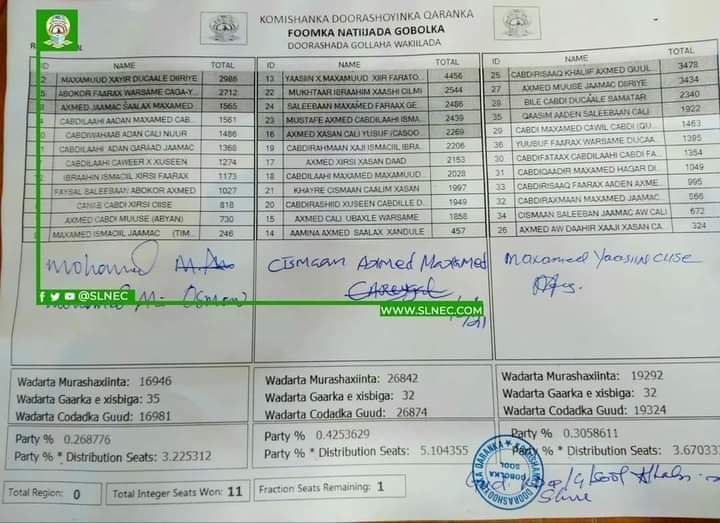 KOMISHANKA DOORASHOYINKA QARANKA
FOOMKA NATIIJADA GOBOLKA
DOORASHADA GOLLAHA WAKIILADA
ID NAME TOTAL
MAXAMUUD XAYIR DUCAALE DIIRIYE 2986
ABOKOR FAARAX WARSAME CAGA-Y... 2712
AXMED JAAMAC SAALAX MAXAMED 1565
CABDILAAHI AADAN MAXAMED CAB...
CABDIWAHAAB ADAN CALI NUUR 1486
CABDILAAHI ADAN QARAAD JAAMAC 1368
CABDILAAHI CAWEER X XUSEEN 1274
IBRAAHIN ISMACIIL XIRSI FAARAX 1173
FAYSAL SALEEBAAN ABOKOR AXMED 1027
CANAB CABDI XIRSI CIISE 818
AXMED CABDI MUUSE (ABYAN) 730
MAXAMED ISMACIIL JAAMAC (TIM... 246
ID NAME TOTAL
13 YAASIIN X MAXAMUUD XIIR FARATO... 4456
22 MUKHTAAR IBRAAHIM XAASHI CILMI 2544
24 SALEEBAAN MAXAMED FARAAX GE... 2486
23 MUSTAFE AXMED CABDILAAHI ISMA... 2439
16 AXMED XASAN CALI YUSUF (CASOO... 2269
19 CABDIRAHMAAN XAJI ISMACIIL IBRA... 2206
17 AXMED XIRSI XASAN DAAD 2153
18 CABDILAAHI MAXAMED MAXAMUUD... 2028
21 KHAYRE CISMAAN CAALIM XASAN 1997
20 CABDIRASHIID XUSEEN CABDILLE D... 1949
15 AXMED CALI UBAXLE WARSAME 1858
14 AAMINA AXMED SAALAX XANDULE 457
ID NAME TOTAL
25 CABDIRISAAQ KHALIIF AXMED GUUL... 3478
27 AXMED MUUSE JAAMAC DIIRIYE 3434
28 BILE CABDI DUCAALE SAMATAR 2340
35 QAASIM AADEN SALEEBAAN CALI 1922
29 CABDI MAXAMED CAWIL CABDI (QU... 1463
36 YUUSUF FAARAX WARSAME DUCAA... 1395
30 CABDIFATAAX CABDILAAHI CABDI FA... 1354
31 CABDIQAADIR MAXAMED HAGAR DI... 1049
33 CABDIRISAAQ FAARAX AADEN AXME... 995
32 CABDIRAXMAAN MAXAMED JAAMAC...
34 CISMAAN SALEEBAN JAAMAC AW CALI 672
26 AXMED AW DAAHIR XAAJI XASAN CA... 324
mohamed
Osman
CISMAAN AXMED MAXAMED
Maxamed Yaasiin CIISE
@SLNEC
WWW.SLNEC.COM
Wadarta Murashaxiinta: 16946
Wadarta Gaarka e xisbiga: 35
Wadarta Codadka Guud: 16981
Wadarta Murashaxiinta: 26842
Wadarta Gaarka e xisbiga: 32
Wadarta Codadka Guud: 26874
Wadarta Murashaxiinta: 19292
Wadarta Gaarka e xisbiga: 32
Wadarta Codadka Guud: 19324
Party % 0.268776
Party % * Distribution Seats: 3.225312
Party % 0.4253629
Party % * Distribution Seats: 5.104355
Party % 0.3058611
Party % * Distribution Seats: 3.67033
KOMISHANKA DOORASHOYINKA QARANKA
GOBOLKA
SOOL
Total Region: 0 Total Integer Seats Won: 11 Fraction Seats Remaining: 1